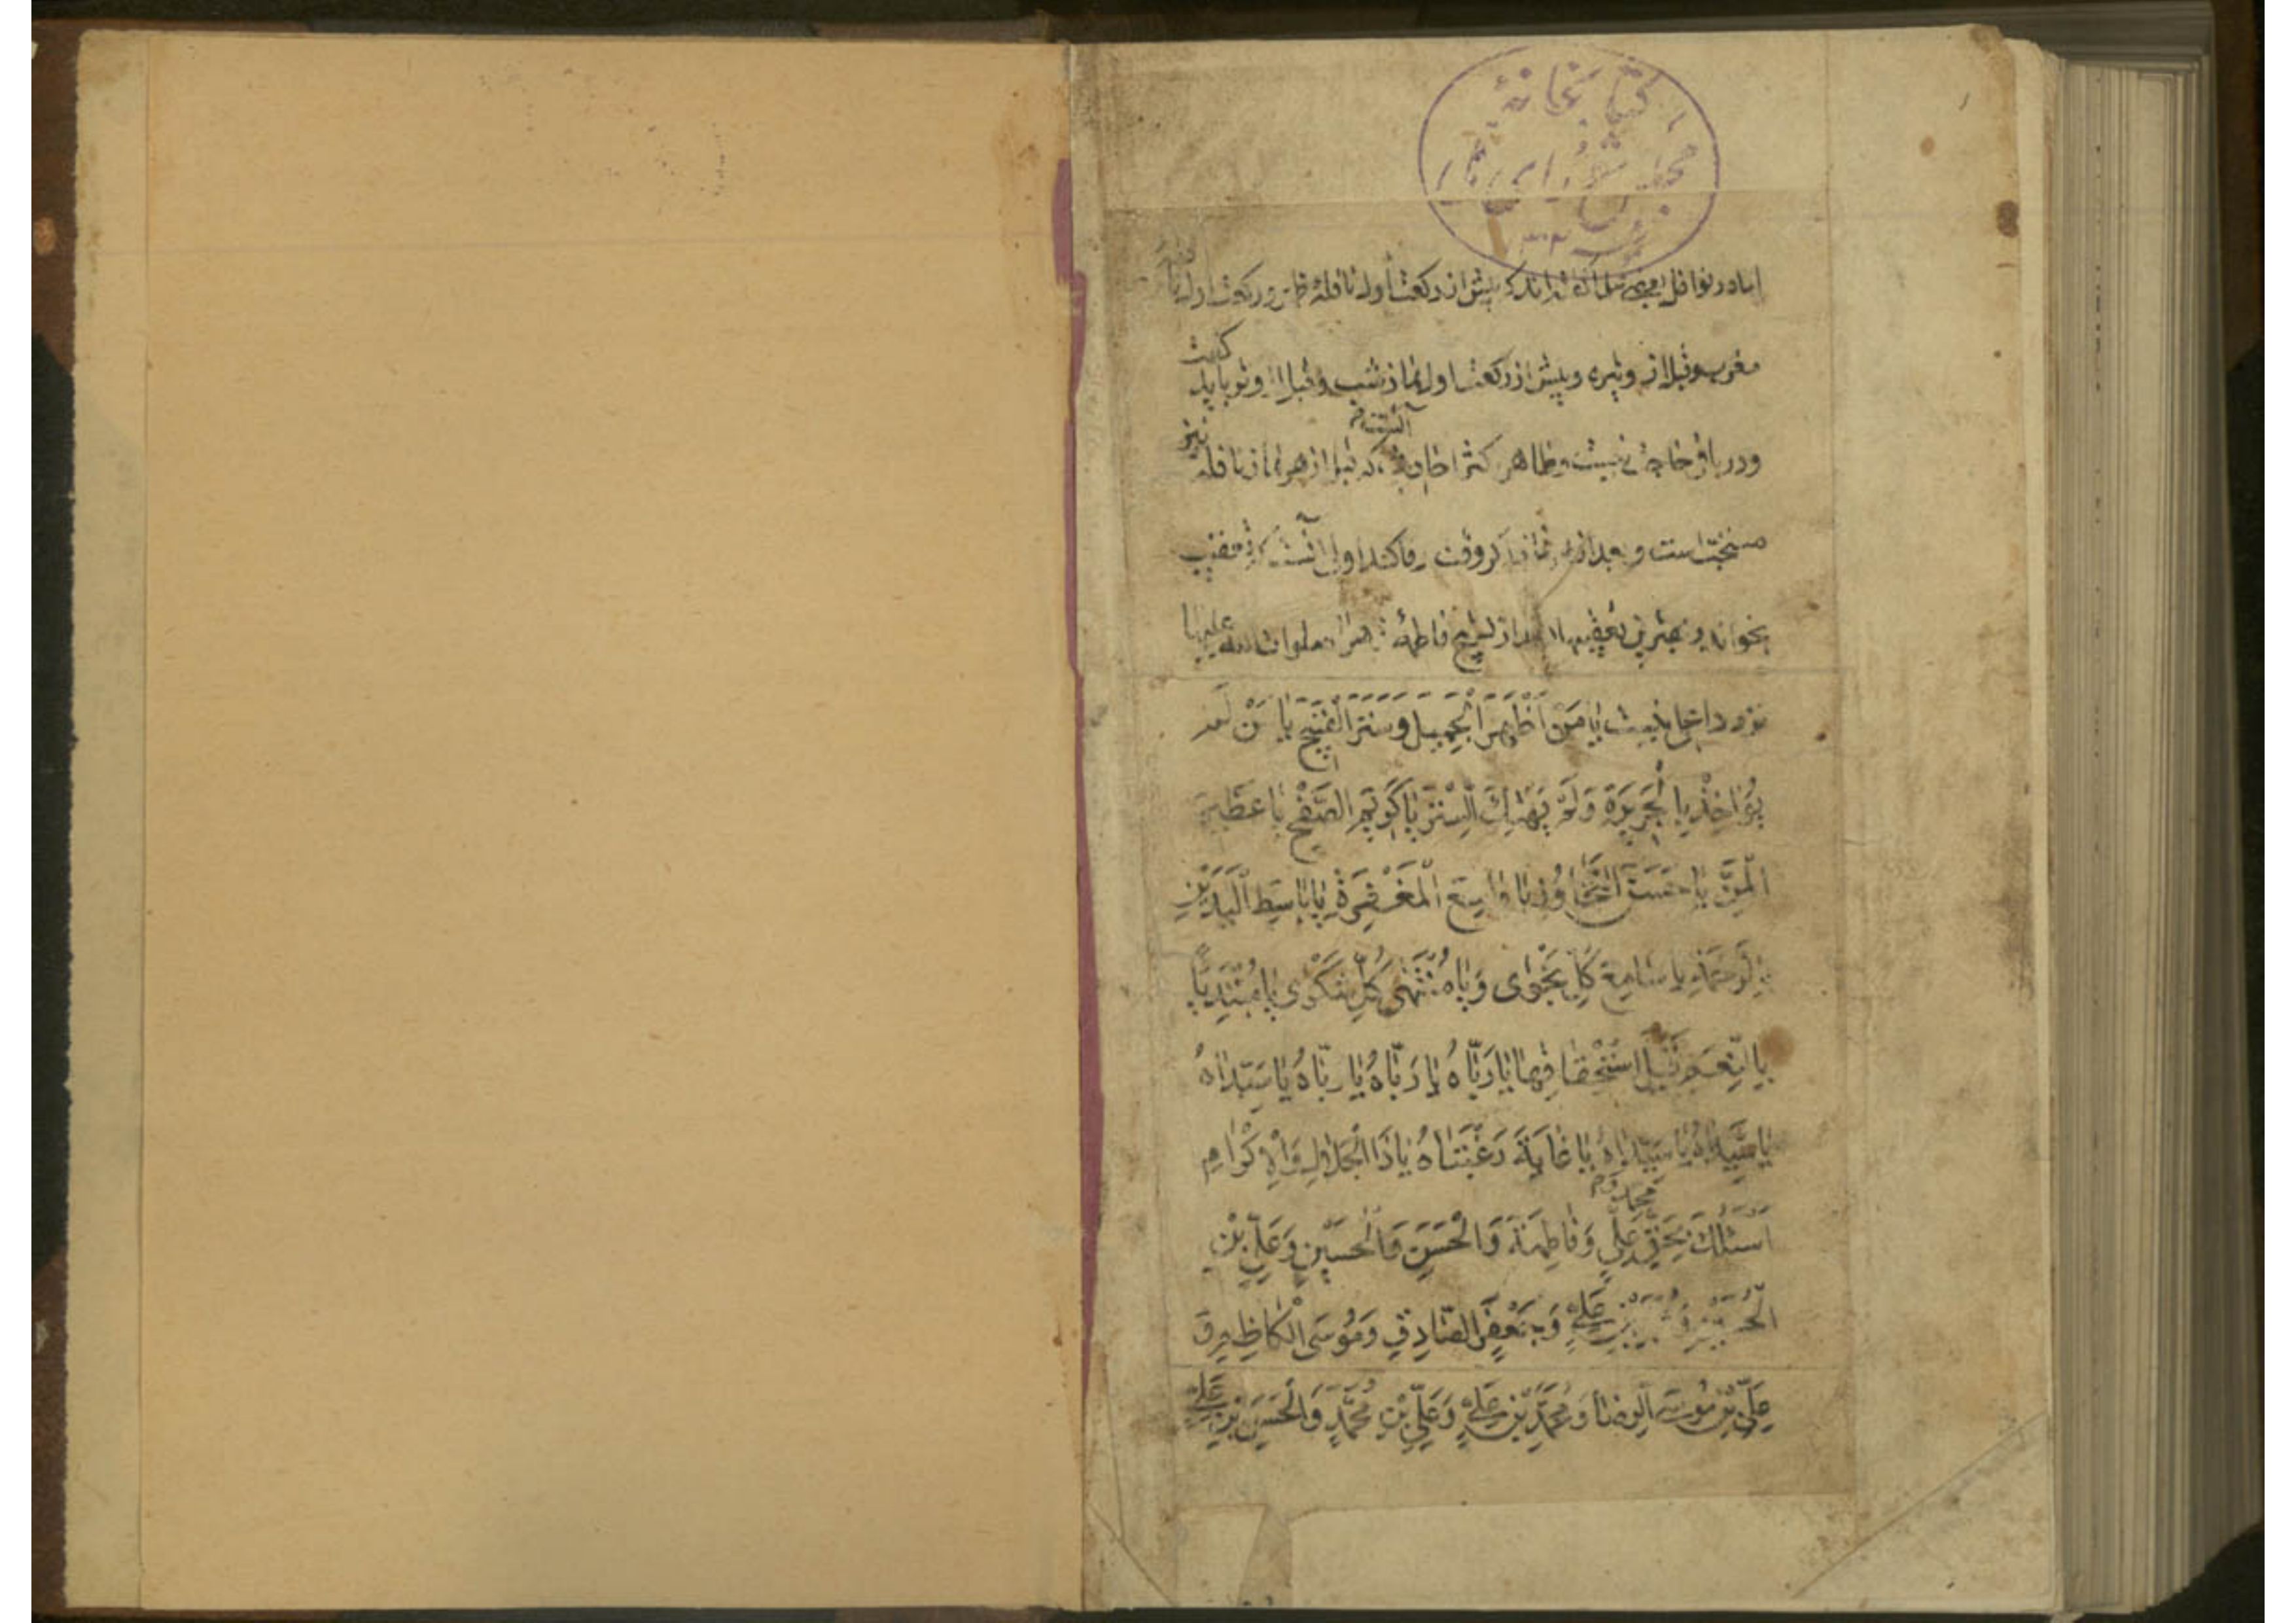 کتابخانهٔ
مجلس شورای
اما در نوافل بعضی که پیش از رکعت اول نافلهٔ و رکعت اول
مغرب و قبل از وتیره و پیش از رکعت اول نماز شب و قبل از وتر باید گفت
و در باقی نیست و ظاهر آنست که قبل از هر نماز نافله نیز
مستحب است و بعد از نماز اگر وقت وفا کند اولی آنست که تعقیب
بخواند و بهترین تعقیبها بعد از تسبیح فاطمهٔ زهرا صلوات الله علیها
یَا مَنْ أَظْهَرَ الْجَمِیلَ وَسَتَرَ الْقَبِیحَ یَا مَنْ لَمْ
یُؤَاخِذْ بِالْجَرِیرَةِ وَلَمْ یَهْتِكِ السِّتْرَ یَا كَرِیمَ الصَّفْحِ یَا عَظِیمَ
الْمَنِّ یَا حَسَنَ التَّجَاوُزِ یَا وَاسِعَ الْمَغْفِرَةِ یَا بَاسِطَ الْیَدَیْنِ
بِالرَّحْمَةِ یَا سَامِعَ كُلِّ نَجْوٰی وَیَا مُنْتَهٰی كُلِّ شَكْوٰی یَا مُبْتَدِیًا
بِالنِّعَمِ قَبْلَ اسْتِحْقَاقِهَا یَا رَبَّاهُ یَا رَبَّاهُ یَا رَبَّاهُ یَا سَیِّدَاهُ
یَا سَیِّدَاهُ یَا سَیِّدَاهُ یَا غَایَةَ رَغْبَتَاهُ یَا ذَا الْجَلَالِ وَالْإِكْرَامِ
أَسْئَلُكَ بِحَقِّ مُحَمَّدٍ وَ عَلِیٍّ وَفَاطِمَةَ وَالْحَسَنِ وَالْحُسَیْنِ وَعَلِیِّ بْنِ
الْحُسَیْنِ وَمُحَمَّدِ بْنِ عَلِیٍّ وَجَعْفَرٍ الصَّادِقِ وَمُوسَی الْكَاظِمِ وَ
عَلِیِّ بْنِ مُوسَی الرِّضَا وَمُحَمَّدِ بْنِ عَلِیٍّ وَعَلِیِّ بْنِ مُحَمَّدٍ وَالْحَسَنِ بْنِ عَلِیٍّ